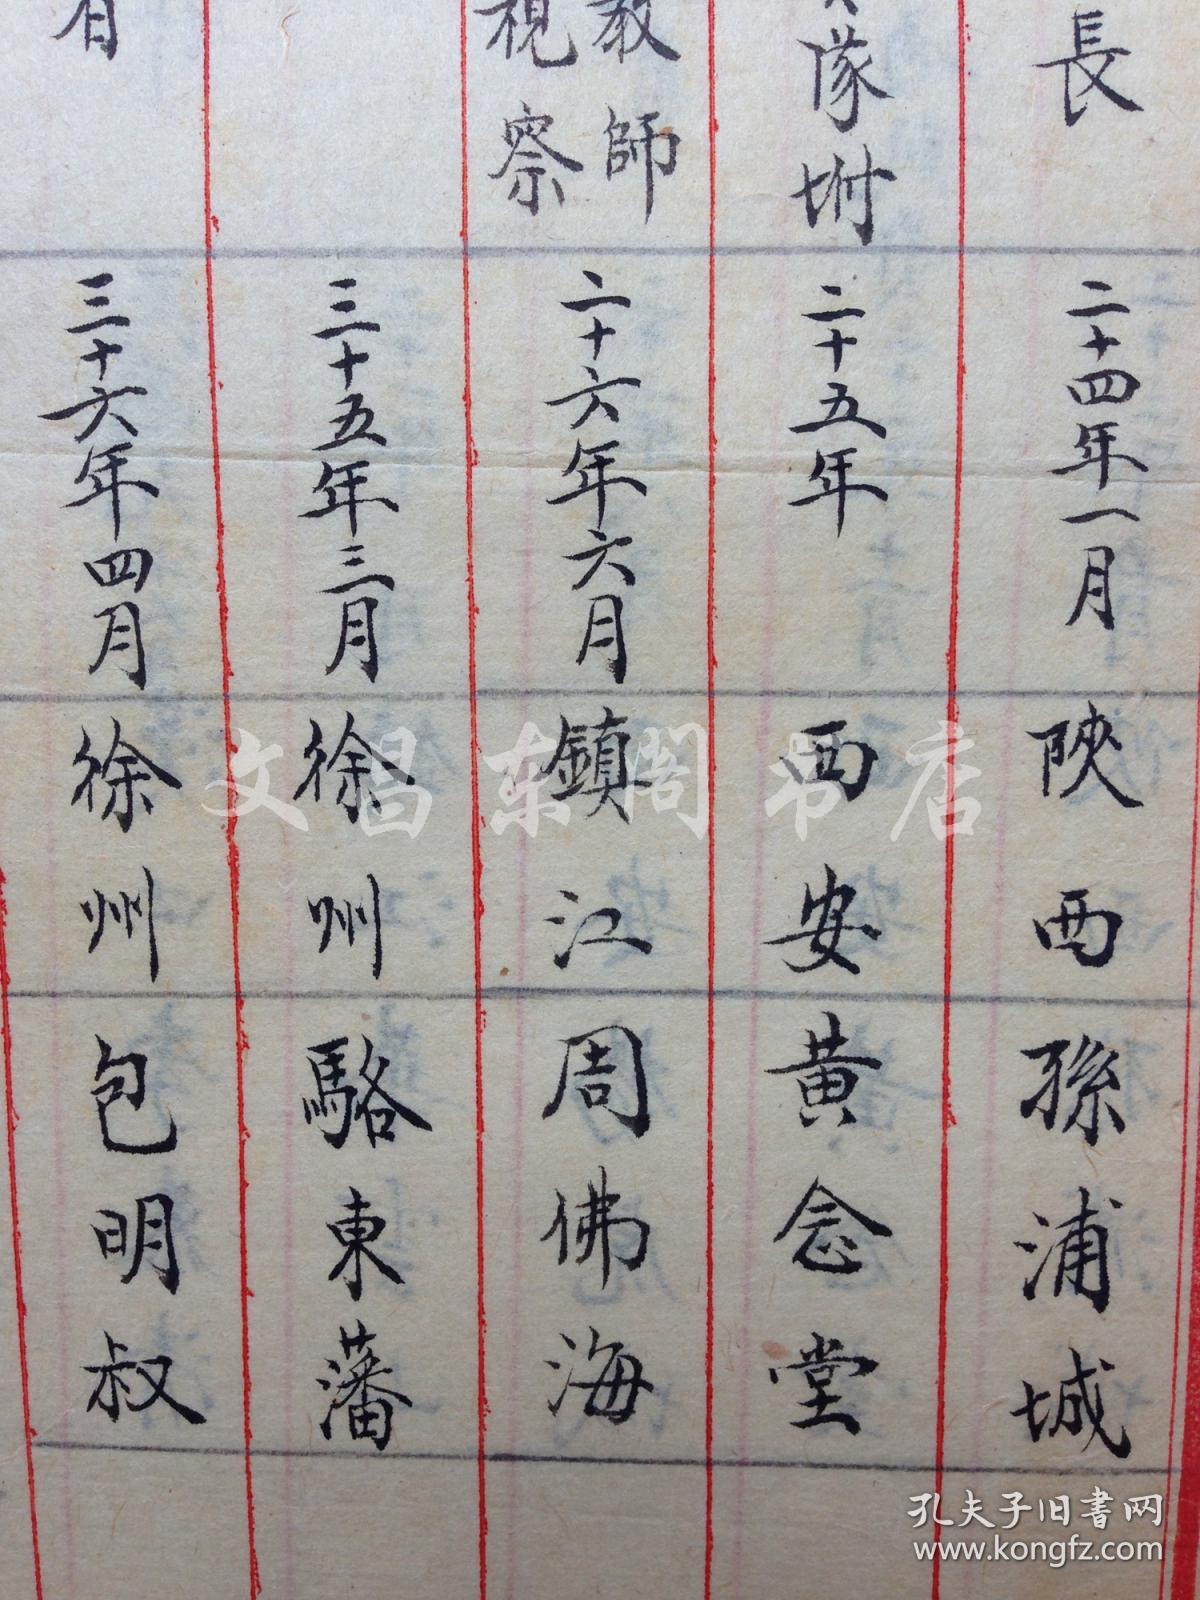 長
二十四年一月
陝西
孫浦城
隊坿
二十五年
西安
黃念堂
教師
視察
二十六年六月
鎮江
周佛海
三十五年三月
徐州
駱東藩
三十六年四月
徐州
包明叔
文昌东阁书店
孔夫子旧书网
www.kongfz.com